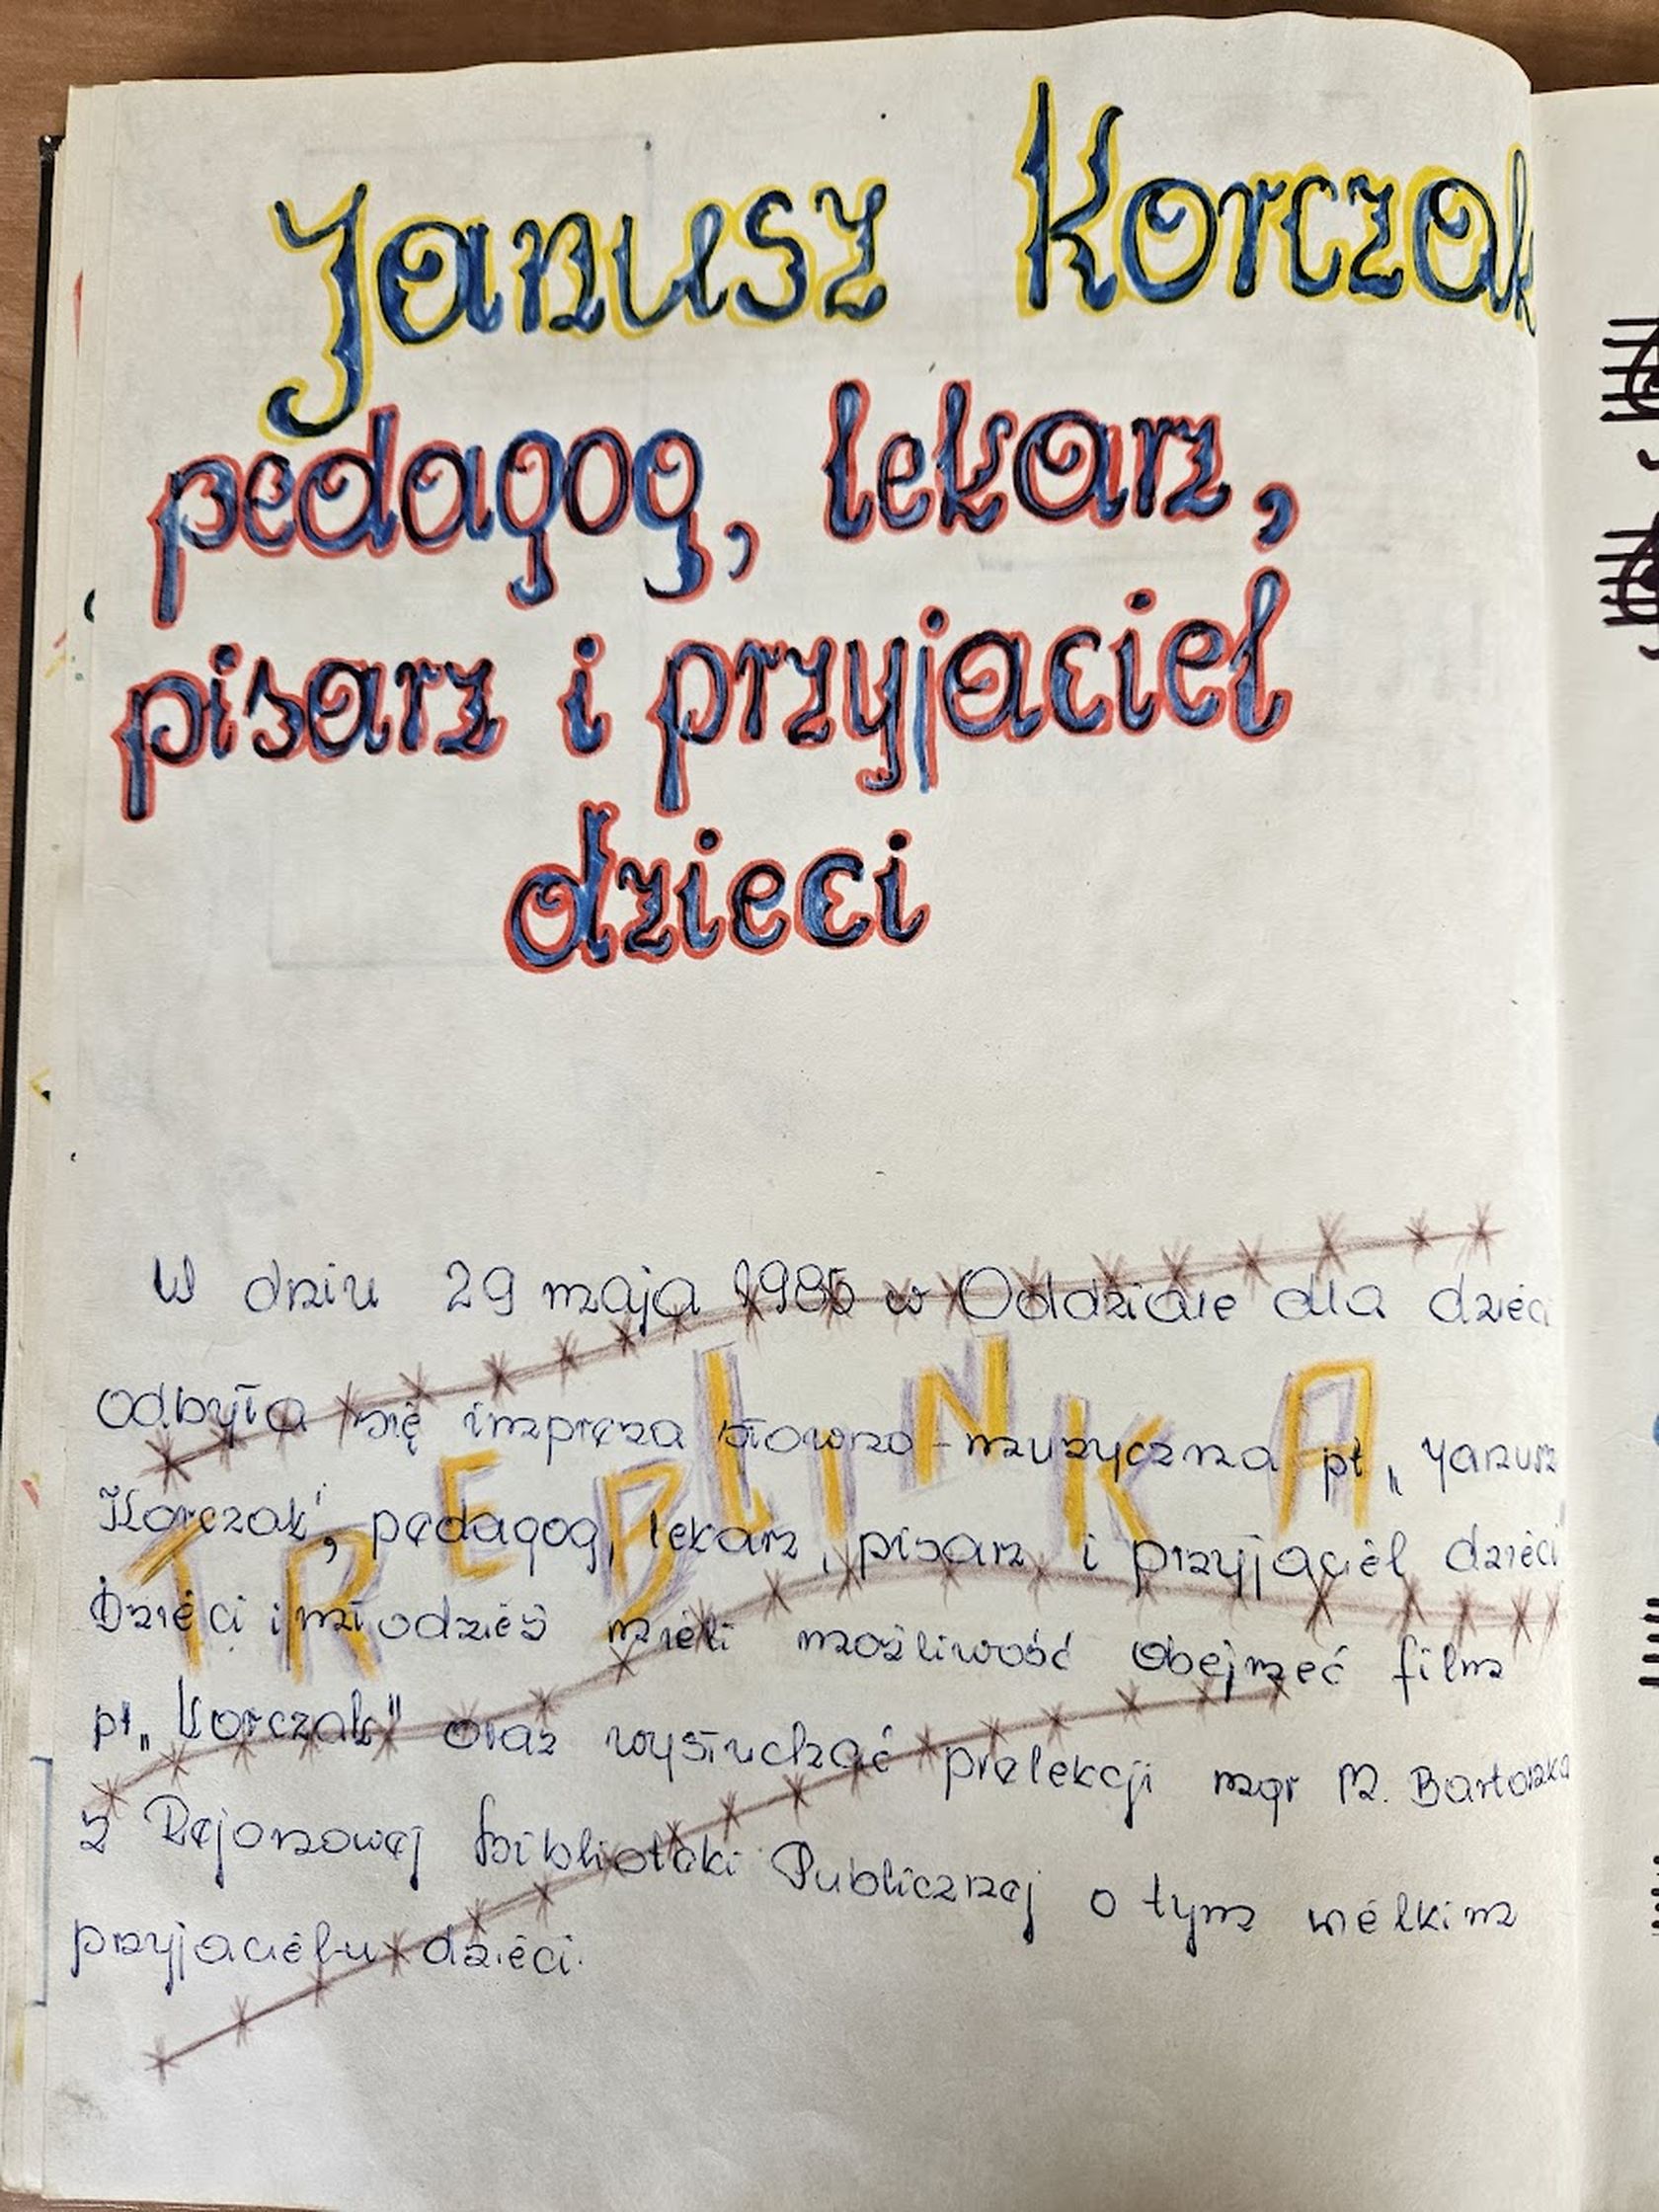 Janusz Korczak
pedagog, lekarz,
pisarz i przyjaciel
dzieci
W dniu 29 maja 1985 w Oddziale dla dzieci
odbyła się impreza słowno-muzyczna pt „Janusz
Korczak", pedagog, lekarz, pisarz i przyjaciel dzieci
TREBLINKA
Dzieci i młodzież mieli możliwość obejrzeć film
pt „Korczak" oraz wysłuchać prelekcji mgr M. Bartoszka
z Rejonowej Biblioteki Publicznej o tym wielkim
przyjacielu dzieci.